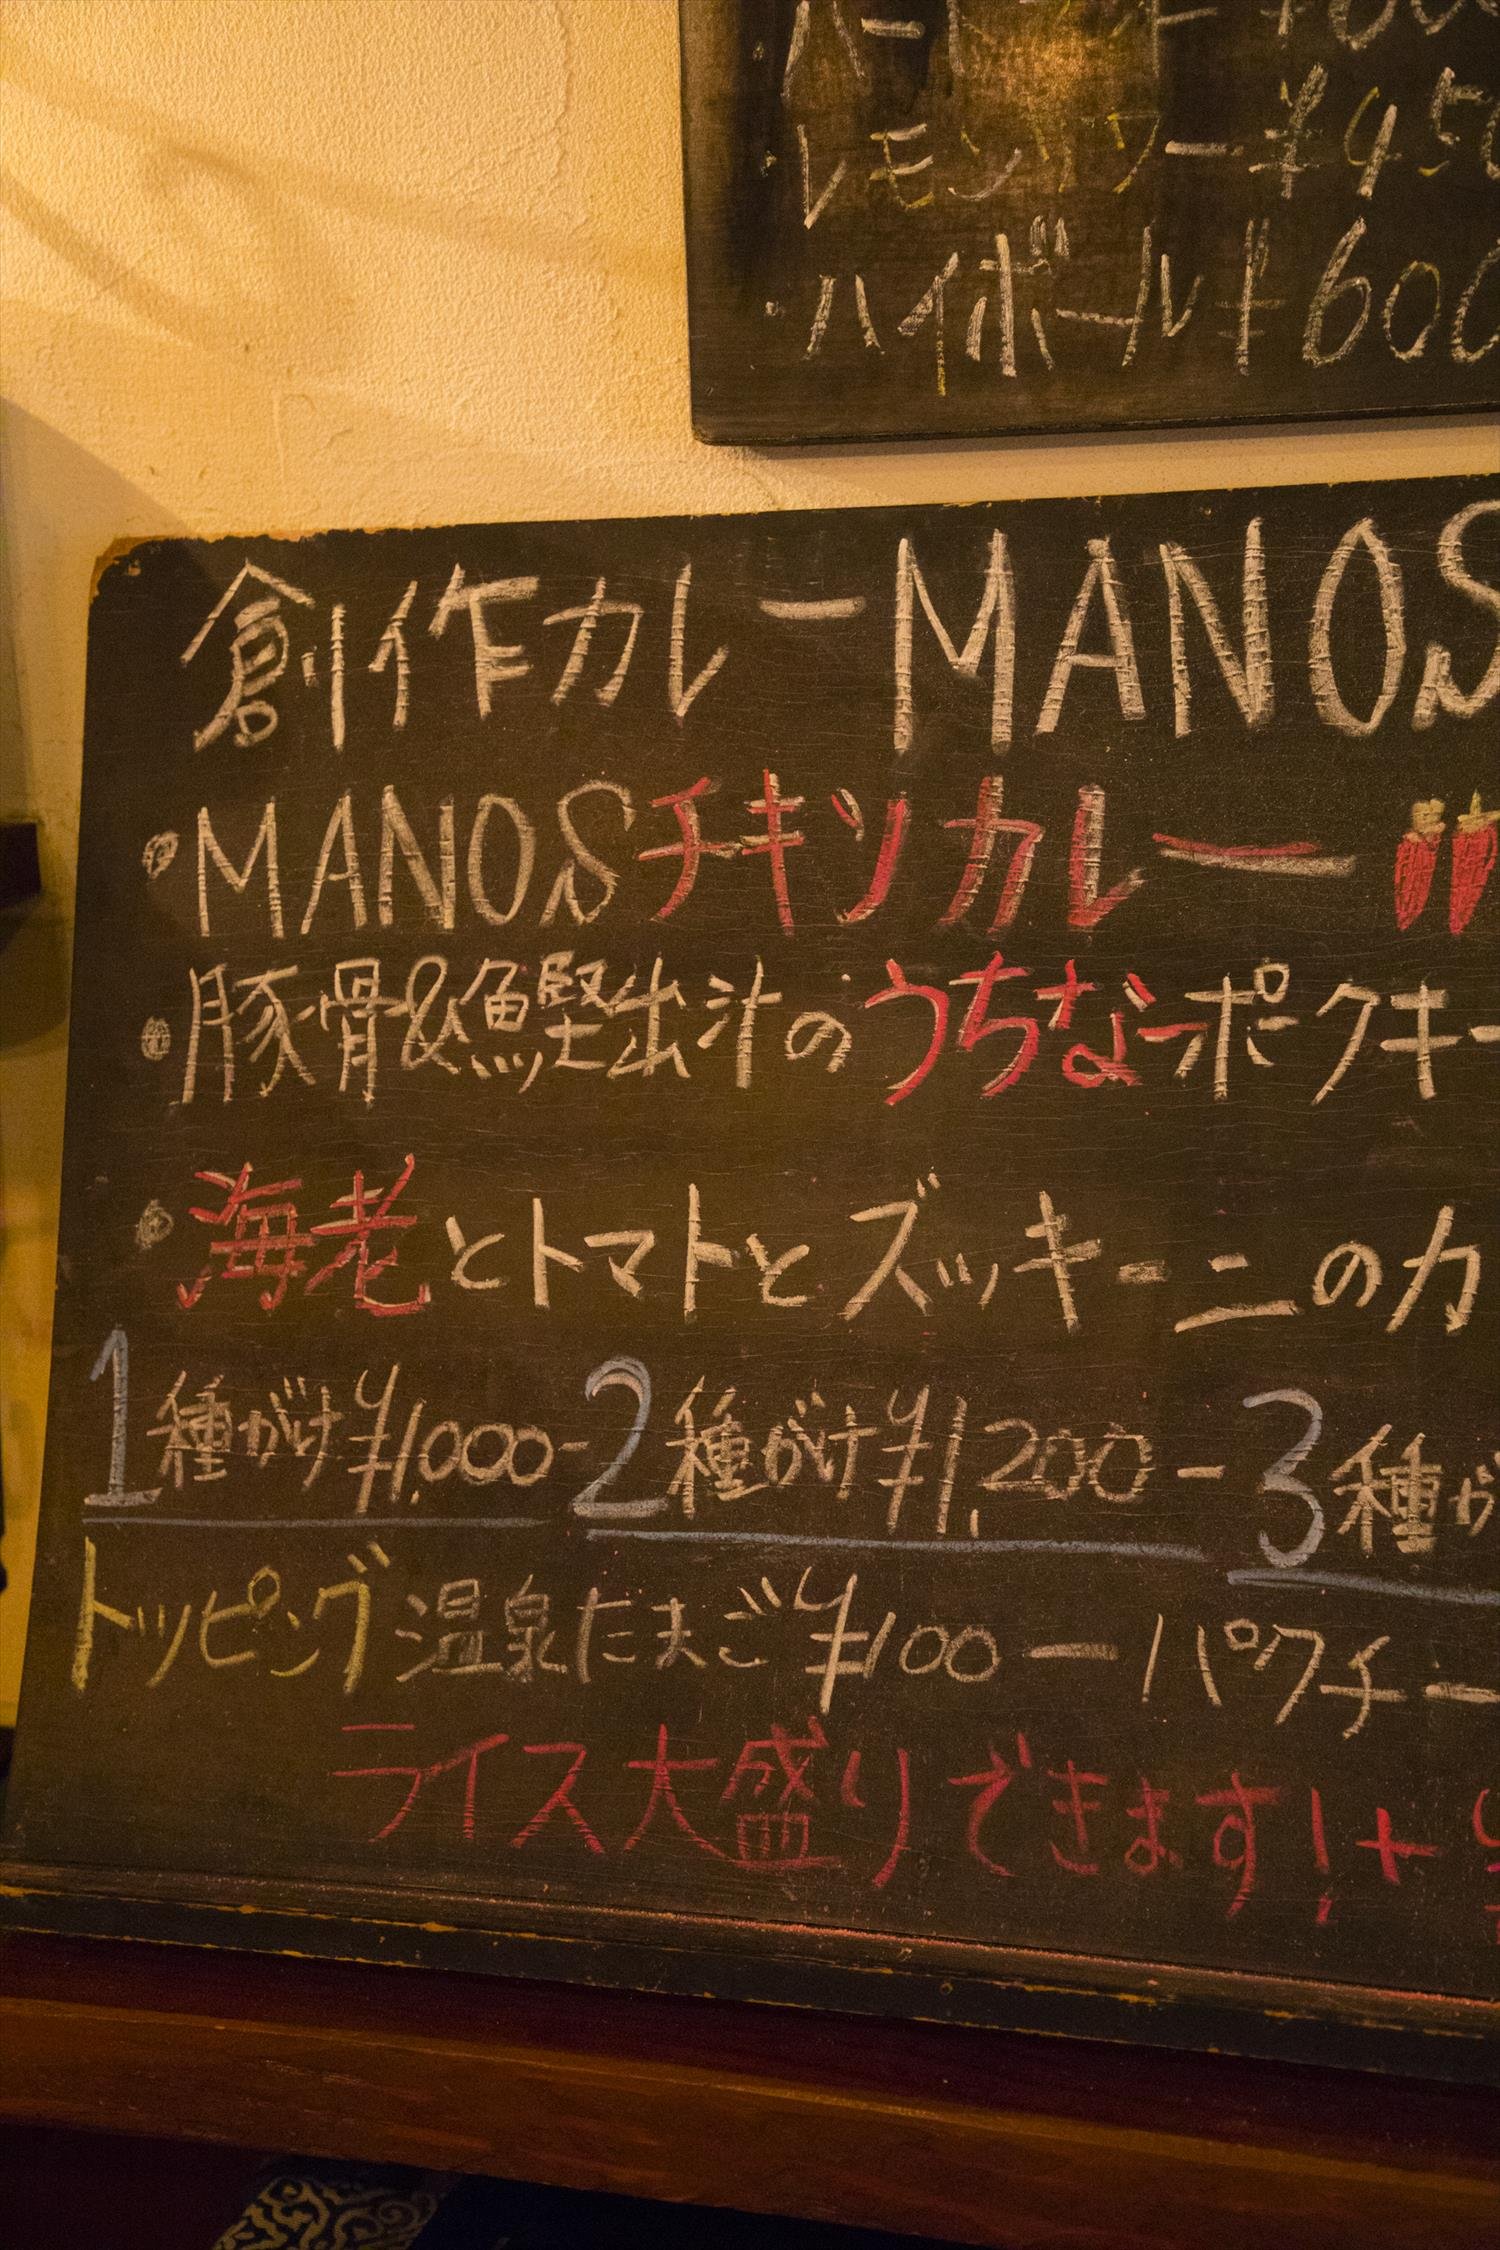 ・レモンサワー ¥450
・ハイボール ¥600
創作カレー MANOS
・MANOSチキンカレー
・豚骨&鰹出汁のうちなーポークキー
・海老とトマトとズッキーニのカ
1種がけ¥1,000- 2種がけ¥1,200- 3種が
トッピング 温泉たまご¥100ー パクチー
ライス大盛りできます!+¥